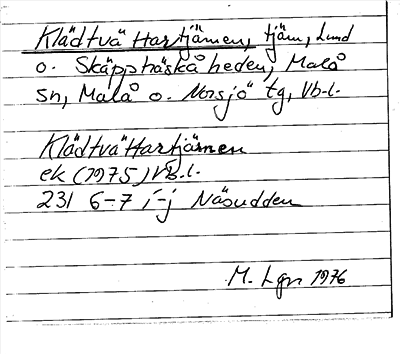 Klädtvättartjärnen, tjärn, Lund
o. Skäppträskåheden, Malå
sn, Malå o. Norsjö tg, Vb.l.
Klädtvättartjärnen
ek (1975) Vb.l.
231 6-7 i-j Näsudden
M. Lgn 1976